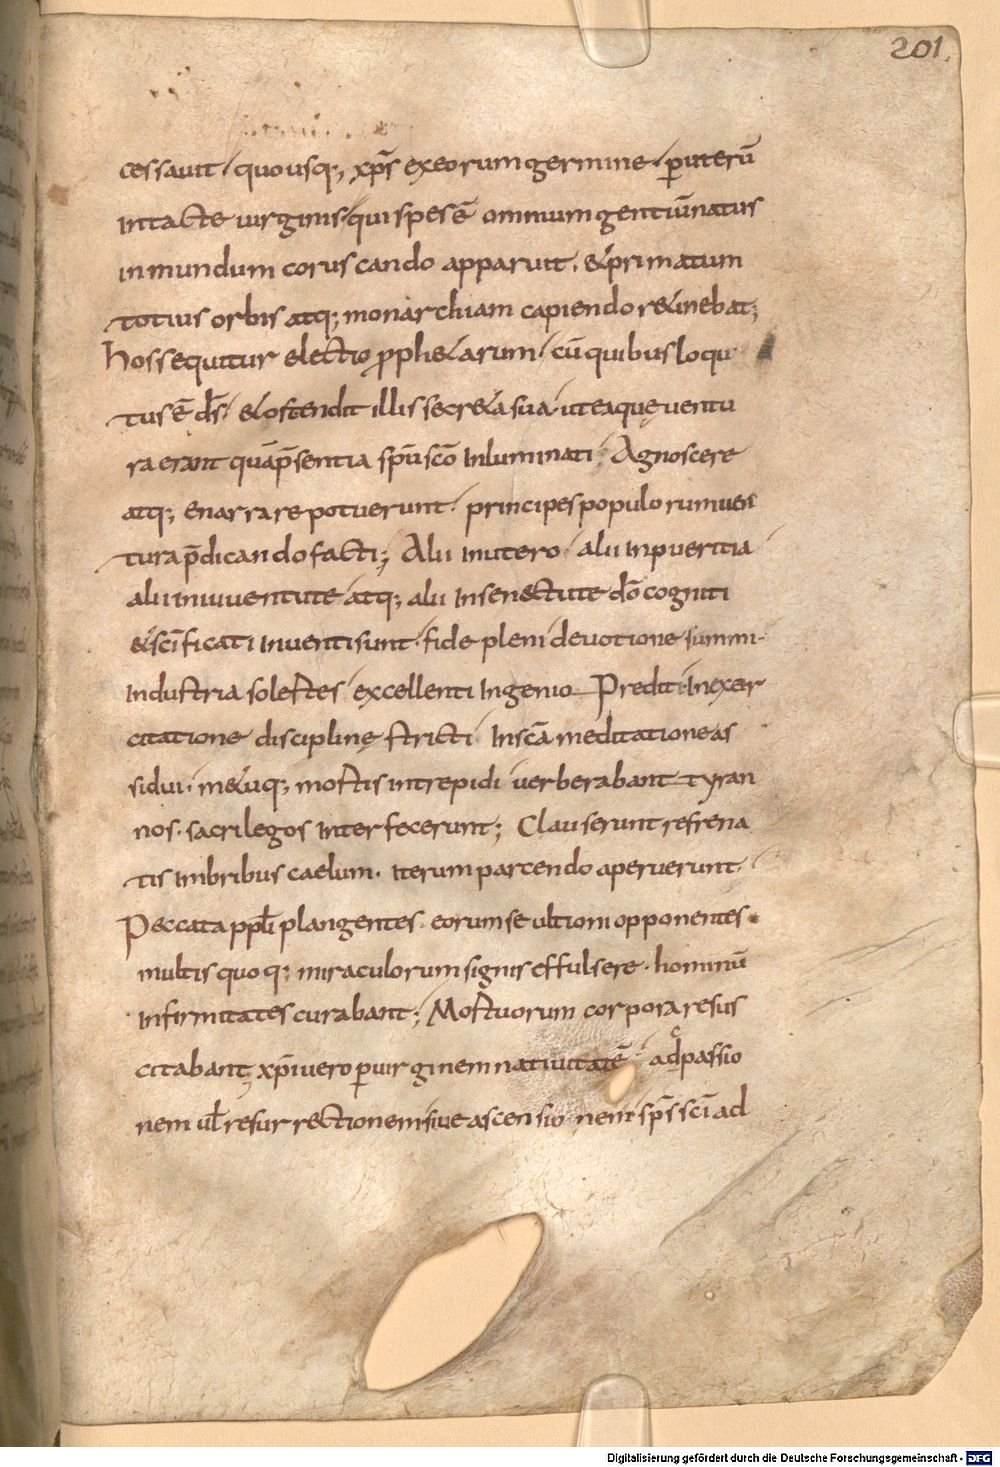 201.
cessauit quousq; xp̄s exeorum germine p̱uterū
intacte uirginis qui spes ē omnium gentiū natus
in mundum coruscando apparuit. & primatum
totius orbis atq; monarchiam capiendo r&inebat;
hos sequitur electio p̱ph&arum cū quibus loqu
tus ē d̄s. & ostendit illis secr&a sua ut ea quę uentu
ra erant quā p̄sentia sp̄u sc̄o inluminati. Agnoscere
atq; enarrare potuerunt. principes populorum uen
tura p̄dicando facti; Alii inutero alii inpueritia
alii iniuuentute atq; alii Insenectute dō cogniti
& sc̄ificati inuenti sunt. fide pleni deuotione summi.
Industria solertes excellenti ingenio Prediti. Inexer
citatione disciplinę stricti Insc̄a meditatione as
sidui. m&uq; mortis intrepidi uerberabant tyran
nos. sacrilegos interfecerunt; Clauserunt refrena
tis imbribus caelum. iterum parcendo aperuerunt.
Peccata ppl̄i plangentes. eorum se ultioni opponentes.
multis quoq; miraculorum signis effulsere. hominū
infirmitates curabant; Mortuorum corpora resus
citabant, xp̄i uero p̱ uirginem natiuitatē. ad passio
nem ul̄ resurrectionem siue ascensionem sp̄s sc̄i ad
Digitalisierung gefördert durch die Deutsche Forschungsgemeinschaft - DFG